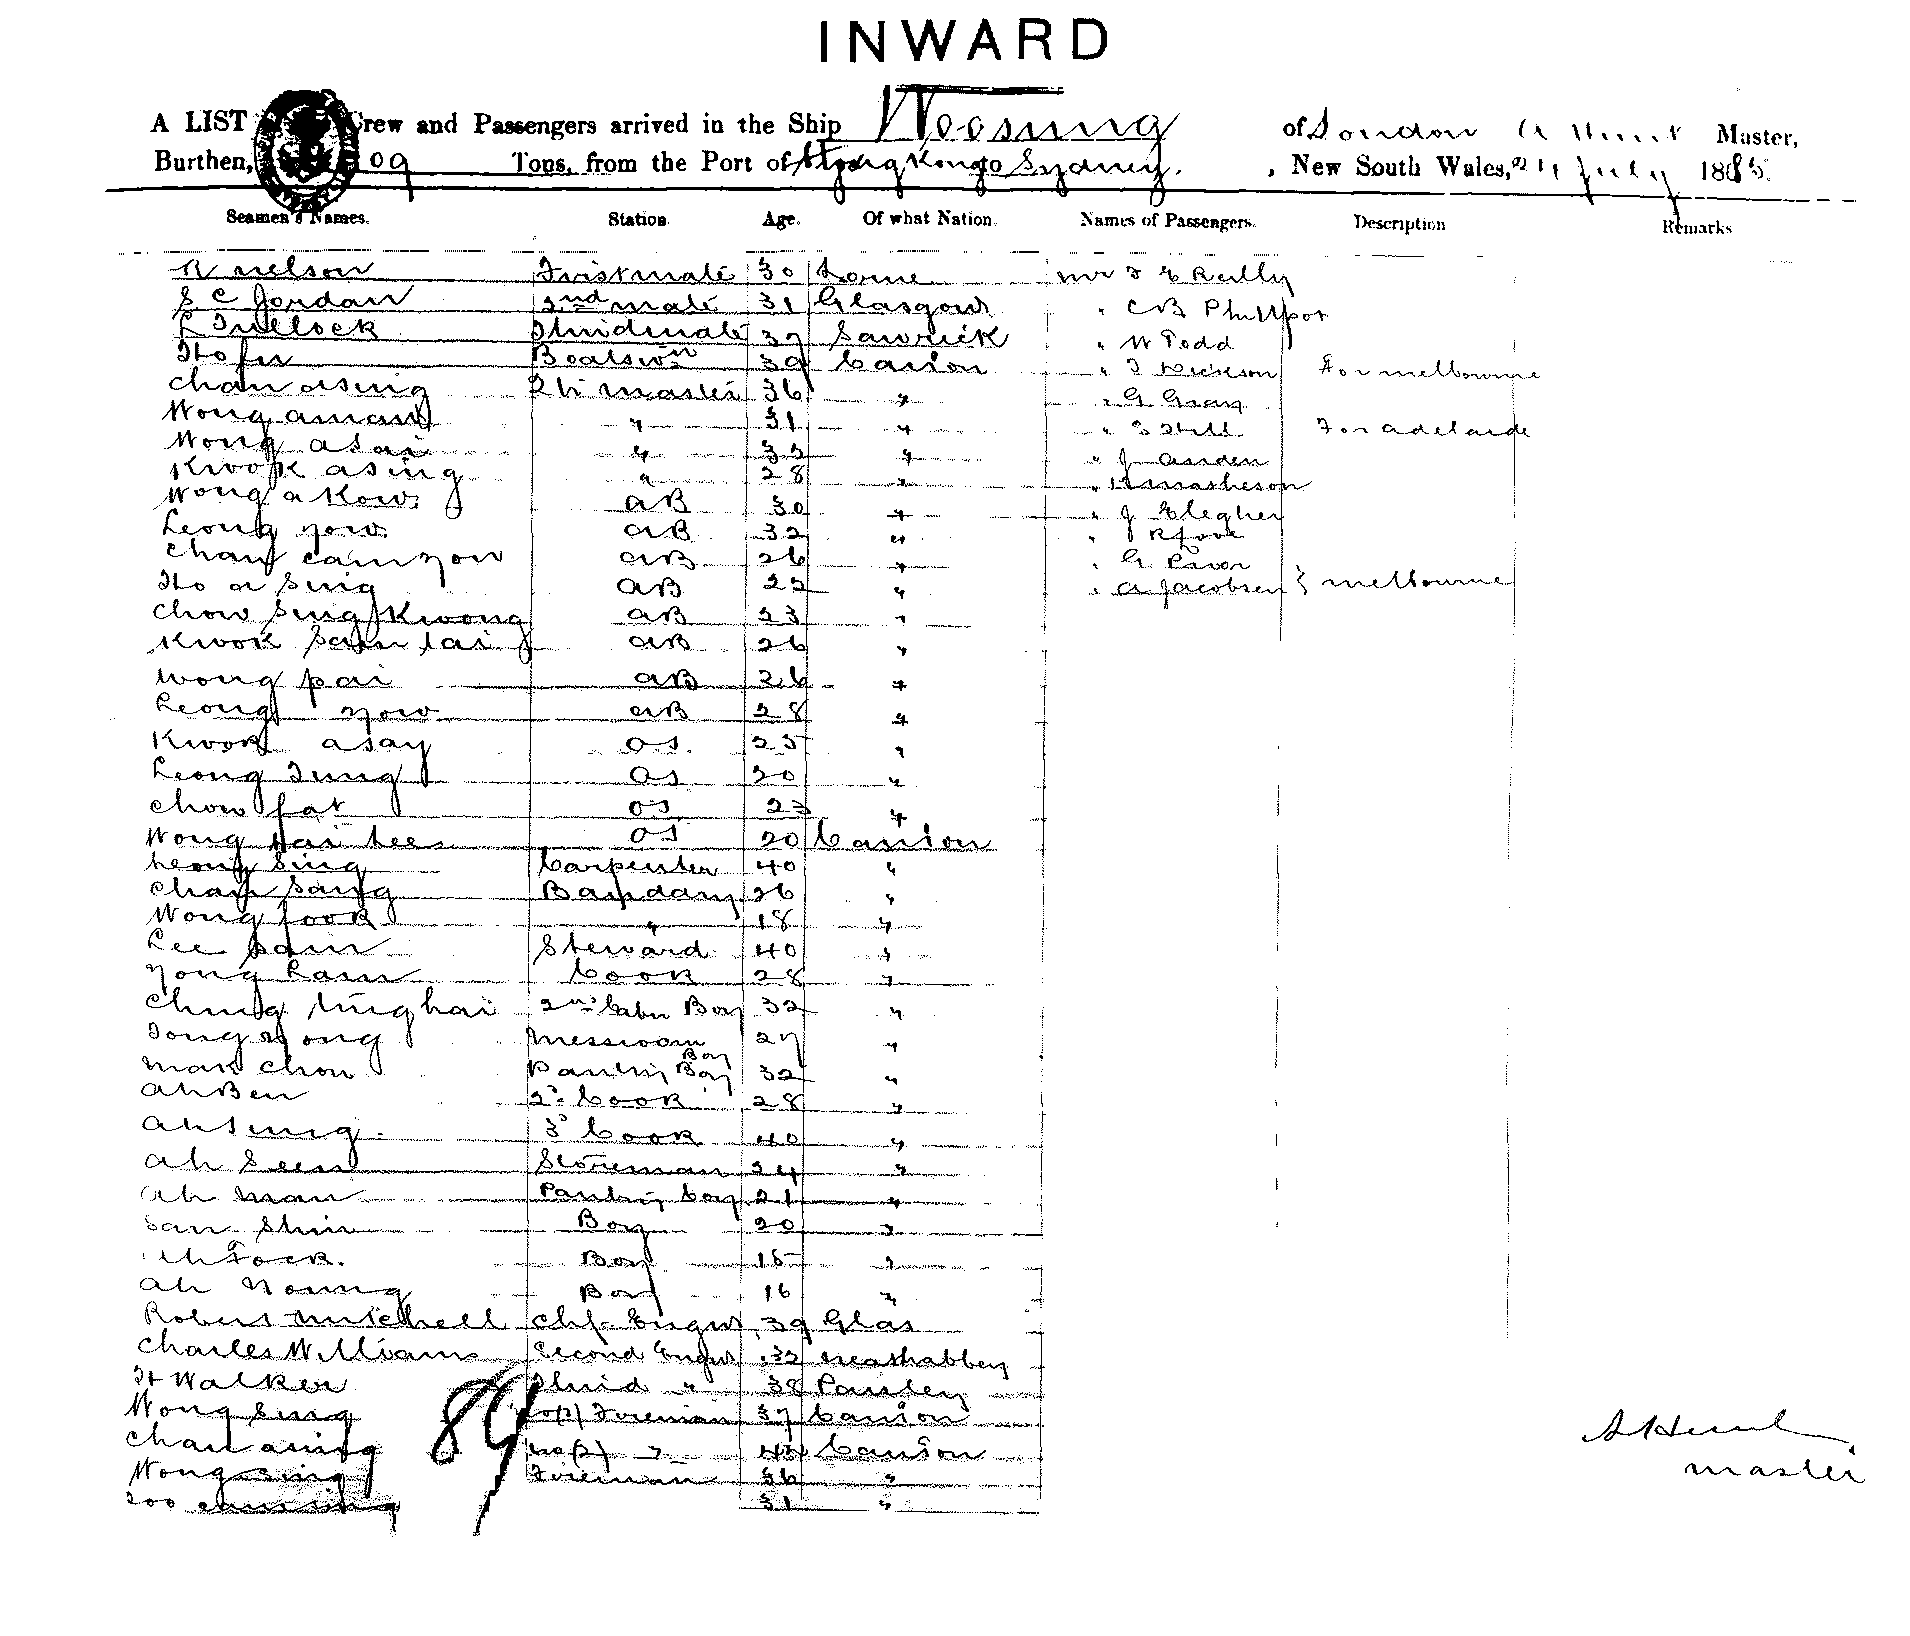 INWARD
A LIST Crew and Passengers arrived in the Ship Woosung of London A Hunt Master,
Burthen, 09 Tons, from the Port of Hong Kong to Sydney. , New South Wales, 24 July 1885.
Seamen's Names. Station. Age. Of what Nation. Names of Passengers. Description Remarks
R Nelson First mate 30 Mr Reilly
S C Jordan 2nd mate 31 Glasgow " C B Phillpot
L Tullock Third mate 37 " W Todd
Ho fu Boatswn 39 Canton " Dickson For melbourne
Chan asing master 36 " " G Gray
Wong aman " 31 " " Still For adelaide
Wong asai " 33 " " J
Kwok asing " 28 " " matheson
Wong a Kow AB 30 " " J
Leong yow AB 32 " "
Chan cam yow AB 26 " " G
Ho a Sing AB 22 " " A Jacobsen } melbourne
Chow Sing Kwong AB 23 "
Kwok Sam tai AB 26 "
Wong pai AB 26 "
Leong yow AB 28 "
Kwok asay OS. 25 "
Leong Tung OS 20 "
Chow fat OS 23 "
Wong OS 20 Canton
Leong Sing Carpenter 40 "
Chan Sang 26 "
Wong fook " 18 "
Lee Sam Steward 40 "
Yong Cam Cook 28 "
Ching Ting hai 2nd Cabin Boy 32 "
Tong Yong Messroom Boy 27 "
Mak Chow Pantry Boy 32 "
Ah Ben 2d Cook 28 "
Ah Sing 3d Cook 40 "
Ah Seen Storeman 24 "
Ah Man Pantry boy 21 "
San Shin Boy 20 "
Ah Fook. Boy 15 "
Ah Young Boy 16 "
Robert Mitchell Chf Engnr 39 Glas
Charles Williams Second Engnr 32 Neathabbey
H Walker Third " 38 Paisley
Wong Sing Fireman 37 Canton
Chan asing " 44 Canton
Wong Fireman 36 "
31 "
89
A Hunt
Master